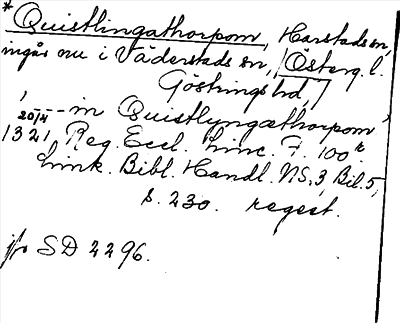 * Quistlingathorpom, Harstads sn,
ingår nu i Väderstads sn, Österg. l.
Göstrings hd,
20/4 -- in Quistlyngæthorpom
1321 Reg. Eccl. Linc. F. 100 r
Link. Bibl. Handl. NS. 3, Bil. 5,
s. 230. regest.
jfr SD 2296.